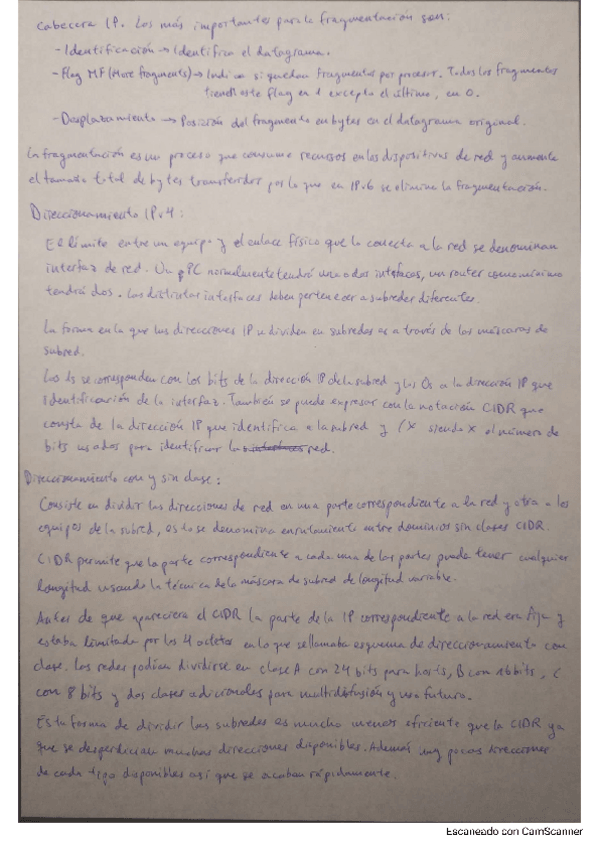 Cabecera IP. Los más importantes para la fragmentación son:
- Identificación → Identifica el datagrama.
- Flag MF (More fragments) → Indica si quedan fragmentos por procesar. Todos los fragmentos
tienen este flag en 1 excepto el último, en 0.
- Desplazamiento → Posición del fragmento en bytes en el datagrama original.
La fragmentación es un proceso que consume recursos en los dispositivos de red y aumenta
el tamaño total de bytes transferidos por lo que en IPv6 se elimina la fragmentación.
Direccionamiento IPv4:
El límite entre un equipo y el enlace físico que lo conecta a la red se denominan
interfaz de red. Un PC normalmente tendrá una o dos interfaces, un router como mínimo
tendrá dos. Las distintas interfaces deben pertenecer a subredes diferentes.
La forma en la que las direcciones IP se dividen en subredes es a través de las máscaras de
subred.
Los 1s se corresponden con los bits de la dirección IP de la subred y los 0s a la dirección IP que
identificación de la interfaz. También se puede expresar con la notación CIDR que
consta de la dirección IP que identifica a la subred y /X siendo X el número de
bits usados para identificar la red.
Direccionamiento con y sin clase:
Consiste en dividir las direcciones de red en una parte correspondiente a la red y otra a los
equipos de la subred, esto se denomina enrutamiento entre dominios sin clases CIDR.
CIDR permite que la parte correspondiente a cada una de las partes pueda tener cualquier
longitud usando la técnica de la máscara de subred de longitud variable.
Antes de que apareciera el CIDR la parte de la IP correspondiente a la red era fija y
estaba limitada por los 4 octetos en lo que se llamaba esquema de direccionamiento con
clase. Las redes podían dividirse en clase A con 24 bits para hosts, B con 16 bits, C
con 8 bits y dos clases adicionales para multidifusión y uso futuro.
Esta forma de dividir las subredes es mucho menos eficiente que la CIDR ya
que se desperdician muchas direcciones disponibles. Además muy pocas direcciones
de cada tipo disponibles así que se acaban rápidamente.
Escaneado con CamScanner